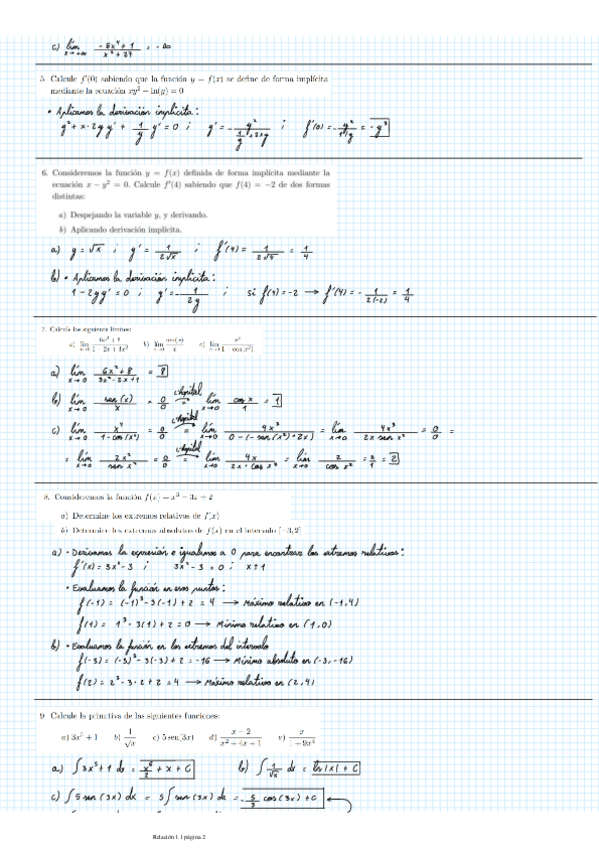 c) lím x→-∞ (-5x⁴+1)/(x³+27) = -∞
5. Calcule f'(0) sabiendo que la función y = f(x) se define de forma implícita
mediante la ecuación xy² − ln(y) = 0
• Aplicamos la derivación implícita:
6. Consideremos la función y = f(x) definida de forma implícita mediante la
ecuación x − y² = 0. Calcule f'(4) sabiendo que f(4) = −2 de dos formas
distintas:
a) Despejando la variable y, y derivando.
b) Aplicando derivación implícita.
a) y = √x ; y' = 1/(2√x) ; f'(4) = 1/(2√4) = 1/4
b) • Aplicamos la derivación implícita:
1 - 2yy' = 0 ; y' = 1/(2y) ; si f(4) = -2 → f'(4) = - 1/(2(-2)) = 1/4
7. Calcule los siguientes límites:
a) lím x→0 (6x²+8)/(3x²-2x+1) = 8
b) lím x→0 sen(x)/x = 0/0 = L'Hopital lím x→0 cos x/1 = 1
c) lím x→0 x⁴/(1-cos(x²)) = 0/0 = L'Hopital lím x→0 4x³/(0-(-sen(x²)·2x)) = lím x→0 4x³/(2x sen x²) = 0/0 =
= lím x→0 2x²/sen x² = 0/0 = L'Hopital lím x→0 4x/(2x·cos x²) = lím x→0 2/cos x² = 2/1 = 2
8. Consideremos la función f(x) = x³ − 3x + 2
a) Determine los extremos relativos de f(x)
b) Determine los extremos absolutos de f(x) en el intervalo [−3, 2]
a) • Derivamos la expresión e igualamos a 0 para encontrar los extremos relativos:
f'(x) = 3x²-3 ; 3x²-3 = 0 ; x±1
• Evaluamos la función en esos puntos:
f(-1) = (-1)³-3(-1)+2 = 4 → Máximo relativo en (-1,4)
f(1) = 1³-3(1)+2 = 0 → Mínimo relativo en (1,0)
b) • Evaluamos la función en los extremos del intervalo
f(-3) = (-3)³-3(-3)+2 = -16 → Mínimo absoluto en (-3,-16)
f(2) = 2³-3·2+2 = 4 → Máximo relativo en (2,4)
9. Calcule la primitiva de las siguientes funciones:
b) 1/√x c) 5 sen(3x)
b) ∫ 1/√x dx = ln|x| + C
c) ∫ 5 sen(3x) dx = 5 ∫ sen(3x) dx = -5/3 cos(3x) + C
Relación 1.1 página 2